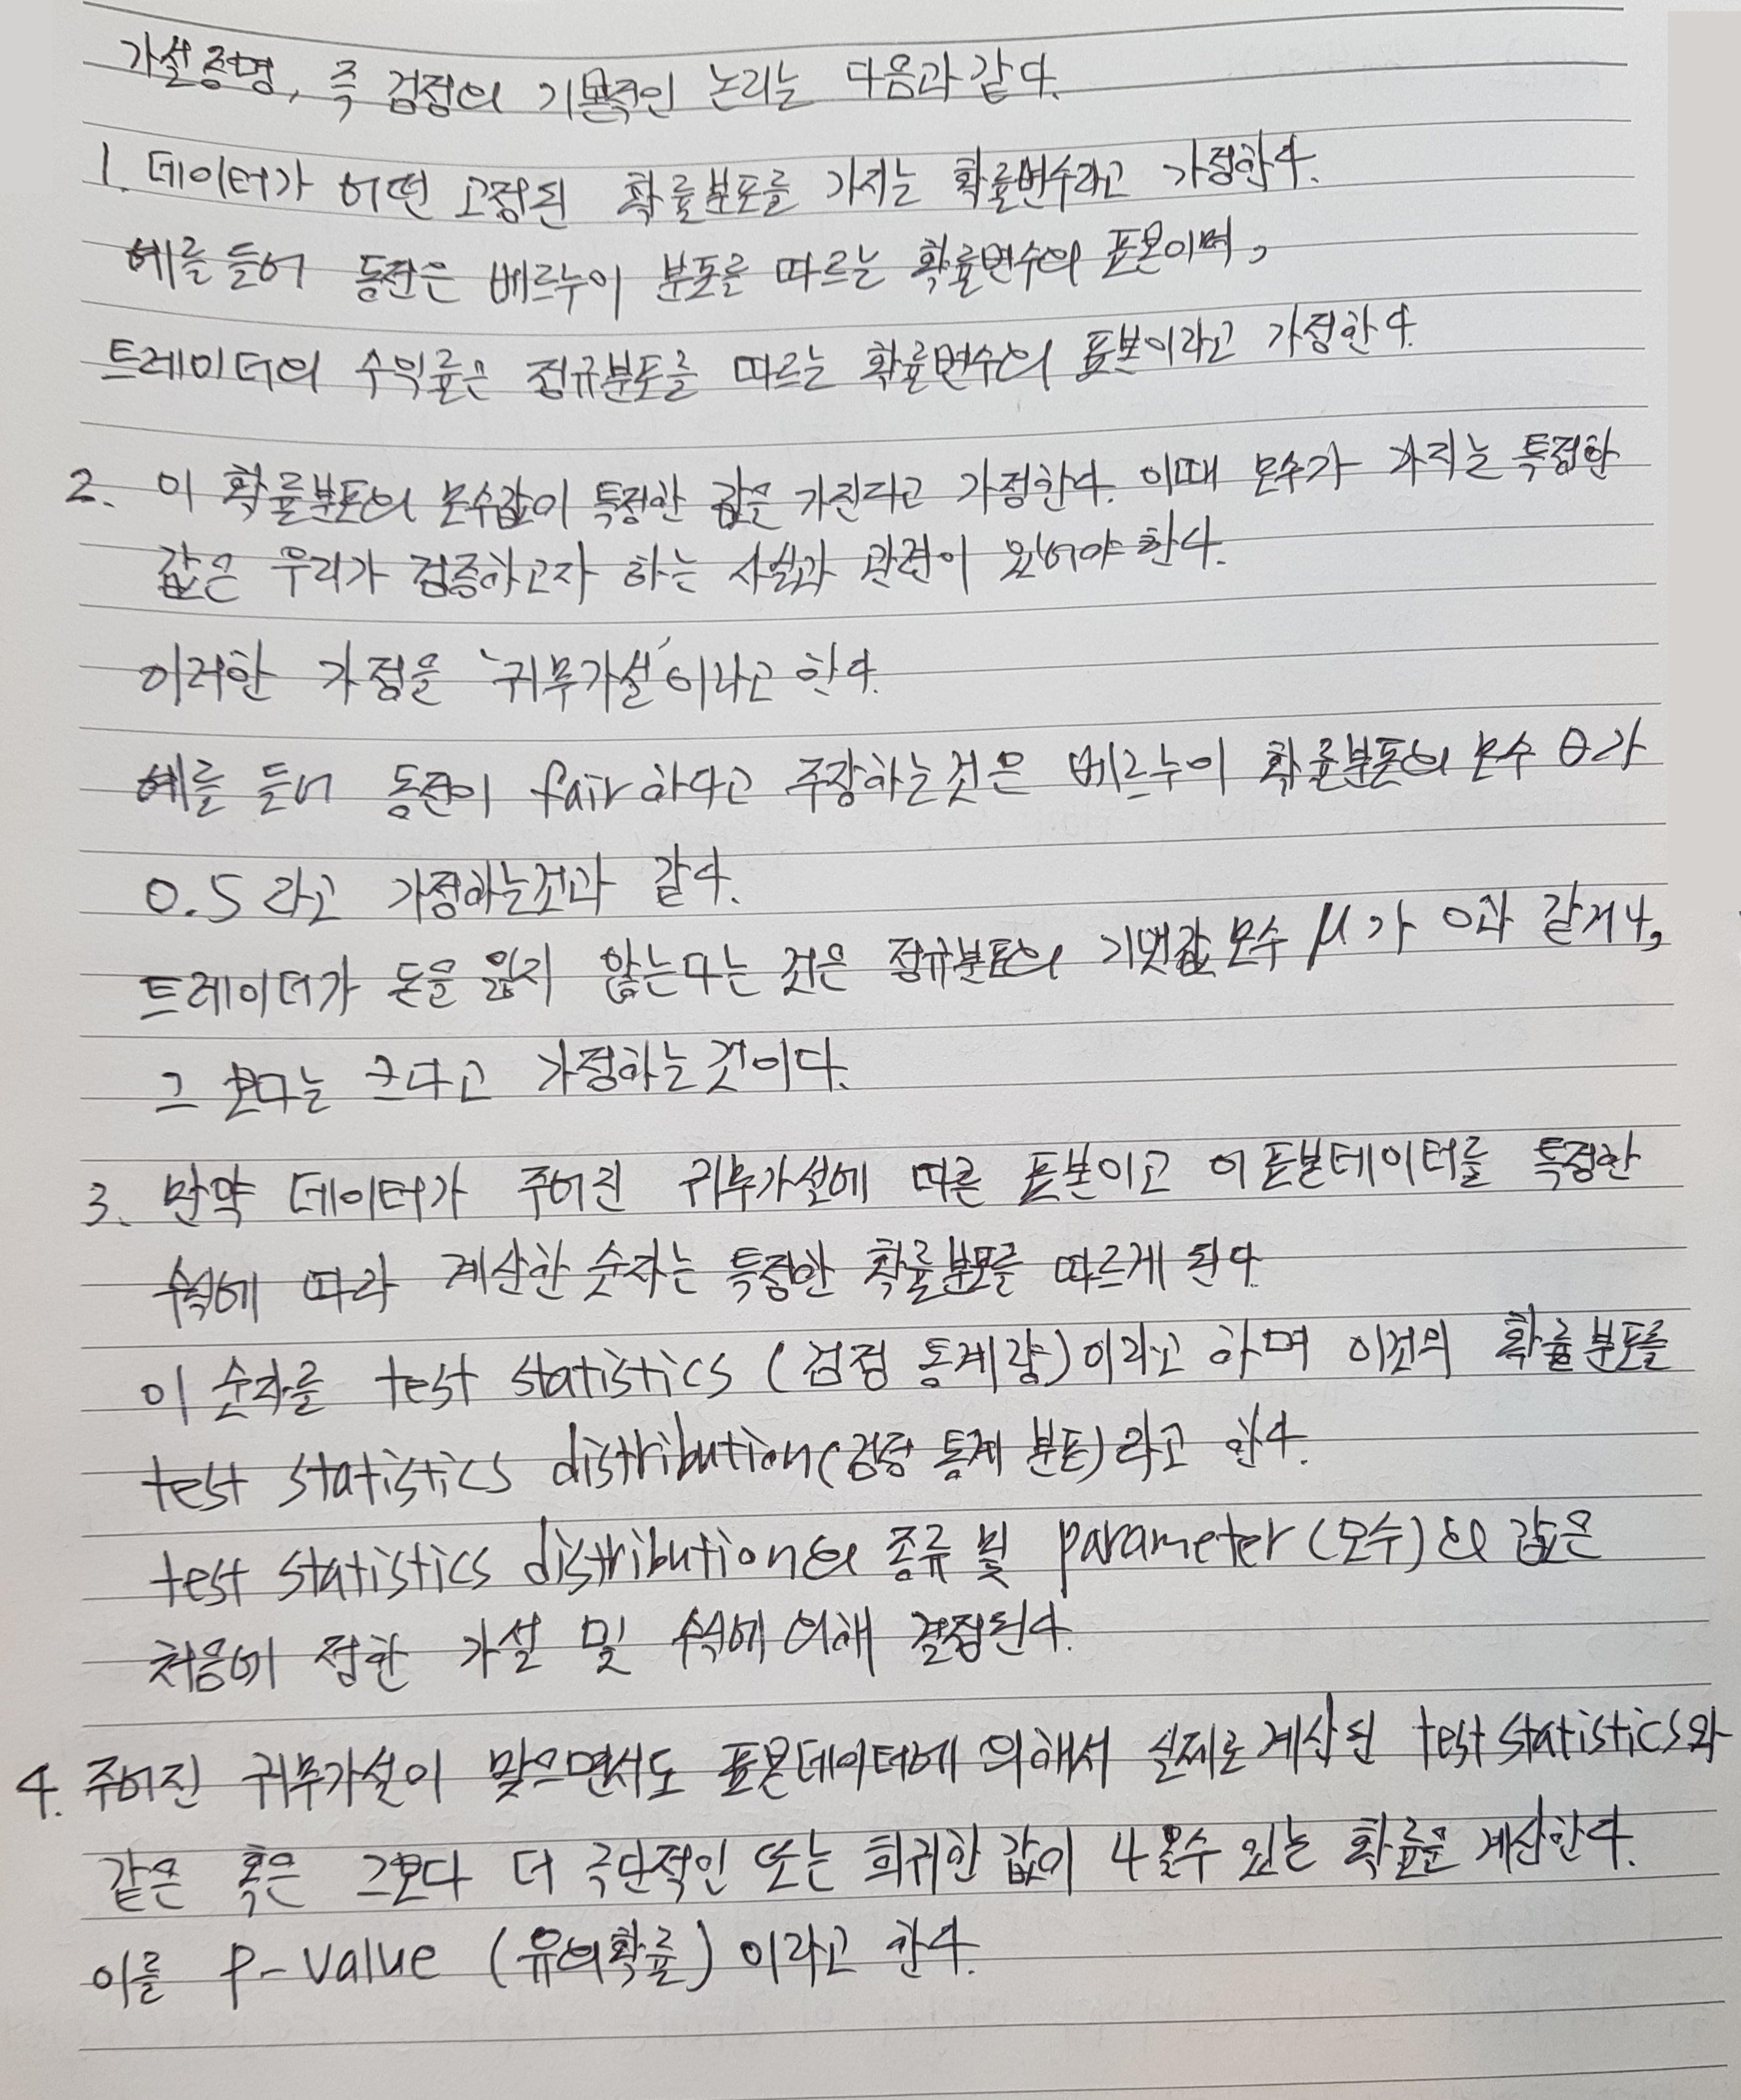 가설증명, 즉 검정의 기본적인 논리는 다음과 같다.
1. 데이터가 어떤 고정된 확률분포를 가지는 확률변수라고 가정한다.
예를 들어 동전은 베르누이 분포를 따르는 확률변수의 표본이며,
트레이더의 수익률은 정규분포를 따르는 확률변수의 표본이라고 가정한다.
2. 이 확률분포의 모수값이 특정한 값을 가진다고 가정한다. 이때 모수가 가지는 특정한
값은 우리가 검증하고자 하는 사실과 관련이 있어야 한다.
이러한 가정을 '귀무가설'이라고 한다.
예를 들어 동전이 fair하다고 주장하는것은 베르누이 확률분포의 모수 θ가
0.5라고 가정하는것과 같다.
트레이더가 돈을 잃지 않는다는 것은 정규분포의 기댓값 모수 μ가 0과 같거나,
그 보다는 크다고 가정하는것이다.
3. 만약 데이터가 주어진 귀무가설에 따른 표본이고 이 표본데이터를 특정한
수식에 따라 계산한 숫자는 특정한 확률분포를 따르게 된다.
이 숫자를 test statistics (검정 통계량)이라고 하며 이것의 확률분포를
test statistics distribution(검정 통계 분포)라고 한다.
test statistics distribution의 종류 및 parameter(모수)의 값은
처음에 정한 가설 및 수식에 의해 결정된다.
4. 주어진 귀무가설이 맞으면서도 표본데이터에 의해서 실제로 계산된 test statistics와
같은 혹은 그보다 더 극단적인 또는 희귀한 값이 나올수 있는 확률을 계산한다.
이를 p-value (유의확률)이라고 한다.